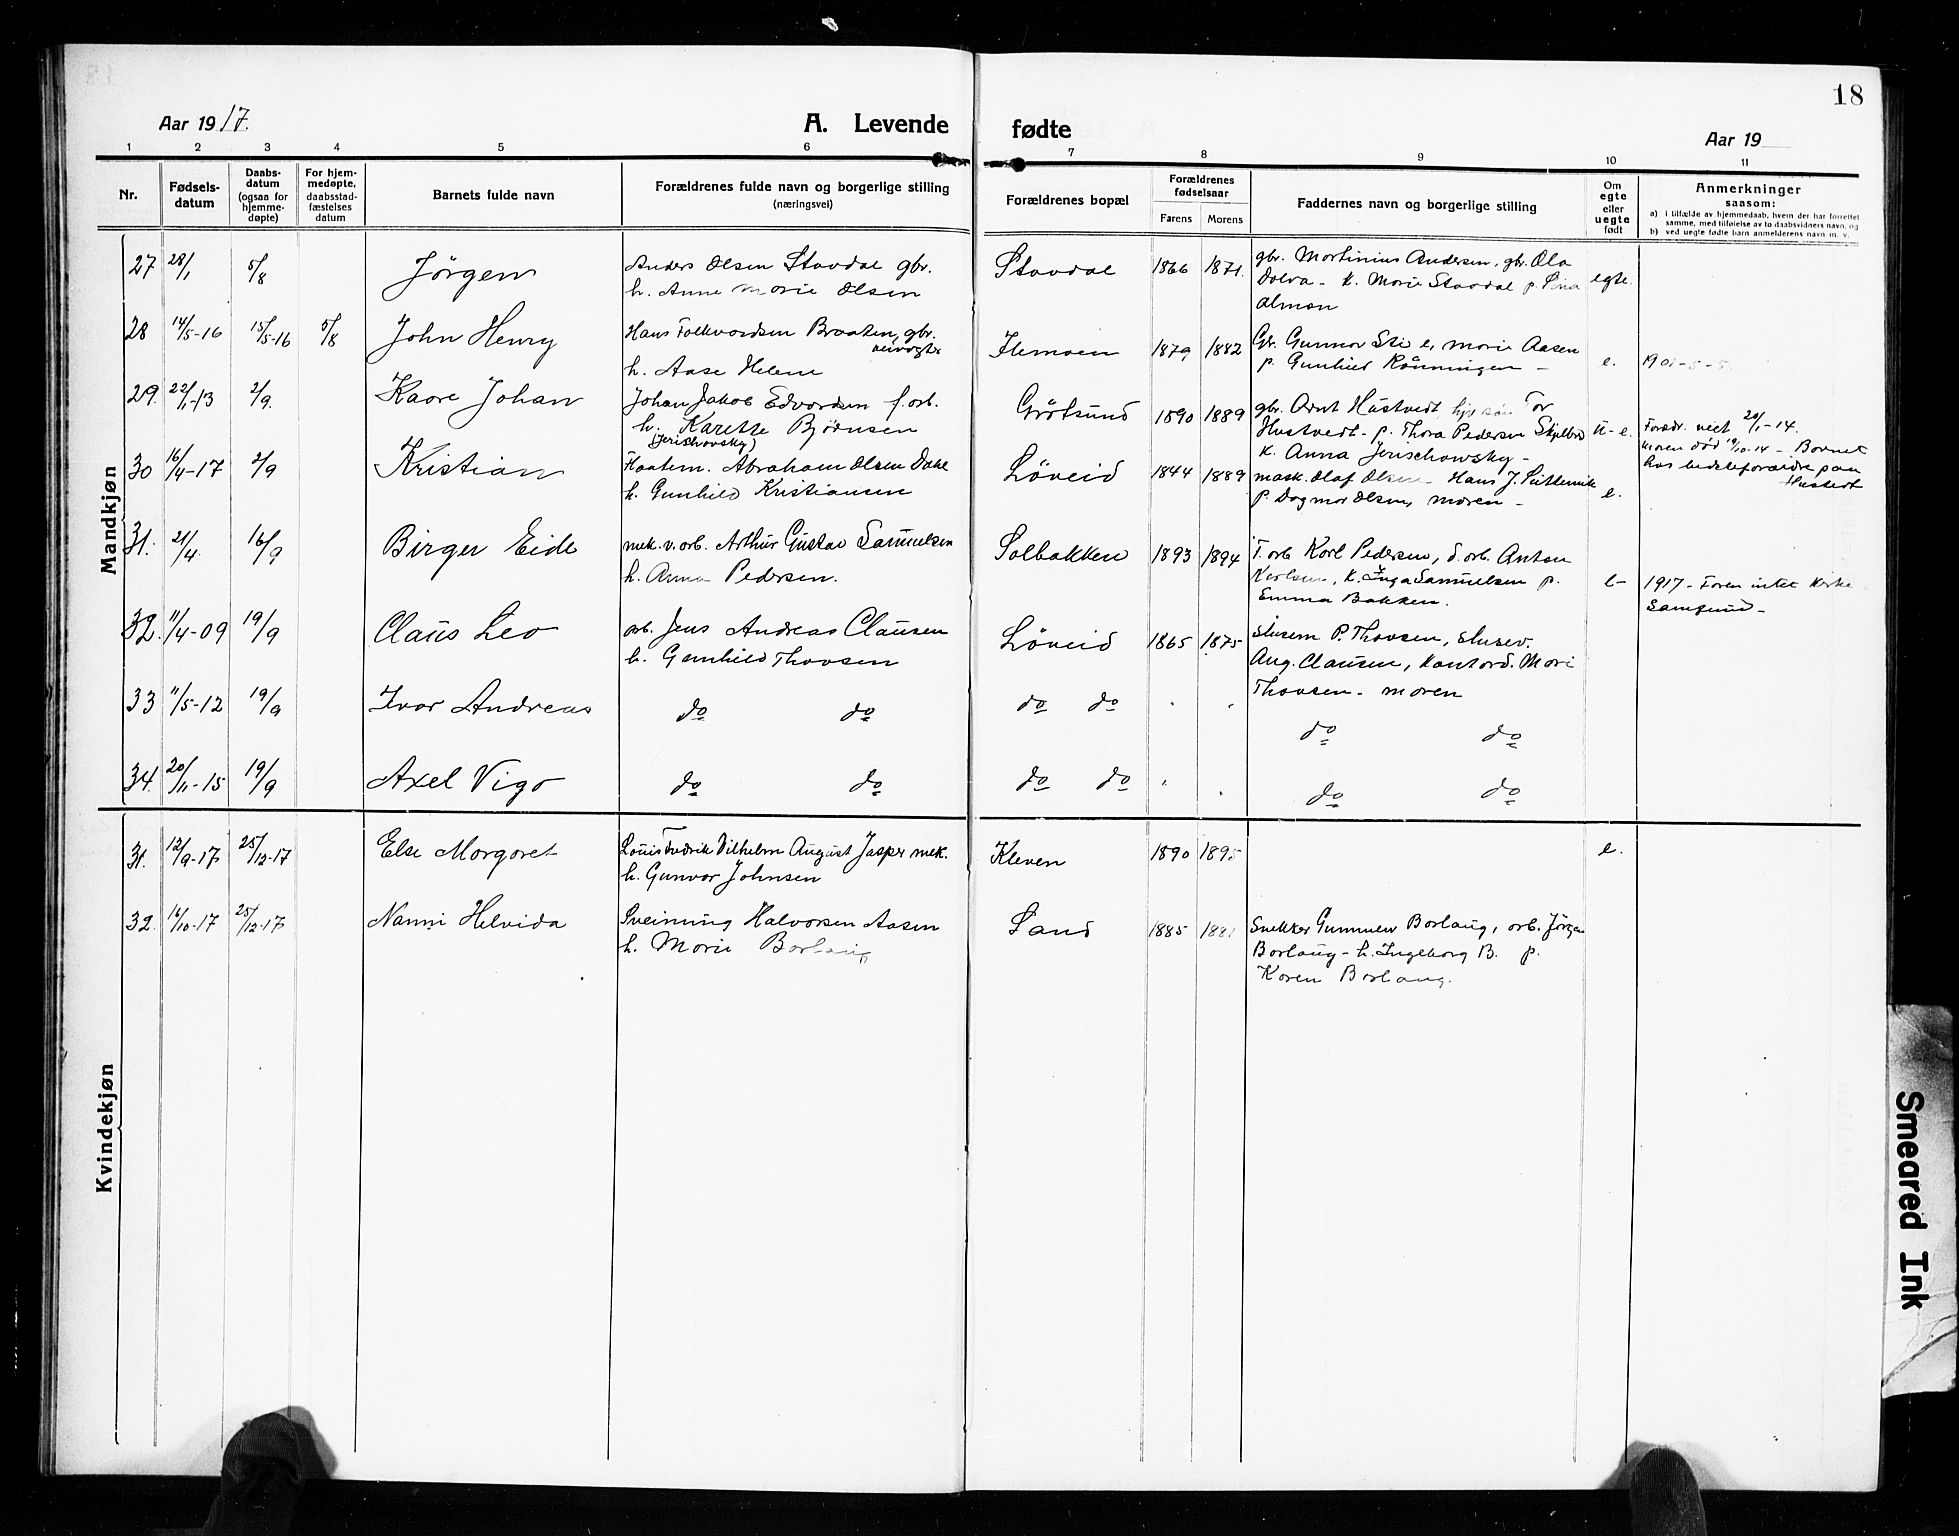 18
Aar 1917.
A. Levende fødte
Aar 19
1 2 3 4 5 6 7 8 9 10 11
Nr.
Fødsels-
datum
Daabs-
datum
(ogsaa for
hjemme-
døpte)
For hjem-
medøpte,
daabsstad-
fæstelses
datum
Barnets fulde navn
Forældrenes fulde navn og borgerlige stilling
(næringsvei)
Forældrenes bopæl
Forældrenes
fødselsaar
Farens Morens
Faddernes navn og borgerlige stilling
Om
egte
eller
uegte
født
Anmerkninger
saasom:
a) i tilfælde av hjemmedaab, hvem der har forrettet
samme, med tilføielse av to daabsvidners navn, og
b) ved uegte fødte barn anmelderens navn m. v.
Mandkjøn
27 28/1 5/8 Jörgen
Anders Olsen Stavdal gbr.
h. Anne Marie Olsen
Stavdal 1866 1871.
gbr. Martinius Andersen, gbr. Ola
Dolva - k. Marie Stavdal p.
Olman
egte.
28 14/5-16 15/5-16 5/8 John Henry
Hans Folkvardsen Braaten, gbr.
h. Aase Helene
Ilemoen 1879 1882
Gbr. Gunnar Sti e, Marie Aasen
p. Gunhild Rönningen -
e.
29. 22/1-13 2/9. Kaare Johan
Johan Jakob Edvardsen f.arb.
h. Karette Bjørnsen
(Jerischovsky)
Grötsund 1890 1889
gbr. Arnt Hustvedt, Tor
Hustvedt - p. Thora Pedersen
k. Anna Jerischowsky -
u-e.
Foræl. viet 20/1-14.
Moren död 19/10-14 - Barnet
hos bedsteforældre paa
30 16/4-17 2/9 Kristian
Abraham Olsen Dahl
h. Gunhild Kristiansen
Löveid 1844 1889
mask. Olaf Olsen - Hans J.
p. Dagmar Olsen, moren -
e.
31. 21/4. 16/9 Birger Eide
mek. v. arb. Arthur Gustav Samuelsen
h. Anna Pedersen.
Solbakken 1893 1894
F. arb Karl Pedersen, d. arb. Anton
Karlsen, k. Inga Samuelsen p.
Emma Bakken.
e-
1917 - Faren intet kirke-
samfund -
32. 11/4-09 19/9 Claus Leo
arb. Jens Andreas Clausen
h. Gunhild Thovsen
Löveid 1865 1875
slusem P. Thovsen, slusev.
Aug. Clausen, kontord. Mari
Thovsen - moren
33 11/5-12 19/9 Ivar Andreas
do do
do do
do do
34. 20/11-15 19/9 Axel Vigo
do do
do do
do do
Kvindekjøn
31. 12/9-17 25/12-17 Else Margaret
Louis Fredrik Vilhelm August Jasper mek.
h. Gunvor Johnsen
Kleven 1890 1895
e.
32. 16/10-17 25/12-17 Nanni Helvida
Sveinung Halvorsen Aasen
h. Marie Borlaug
Sand 1885 1881
Snekker Gunnulv Borlaug, arb. Jørgen
Borlaug - h. Ingeborg B. p.
Karen Borlaug.
Smeared Ink